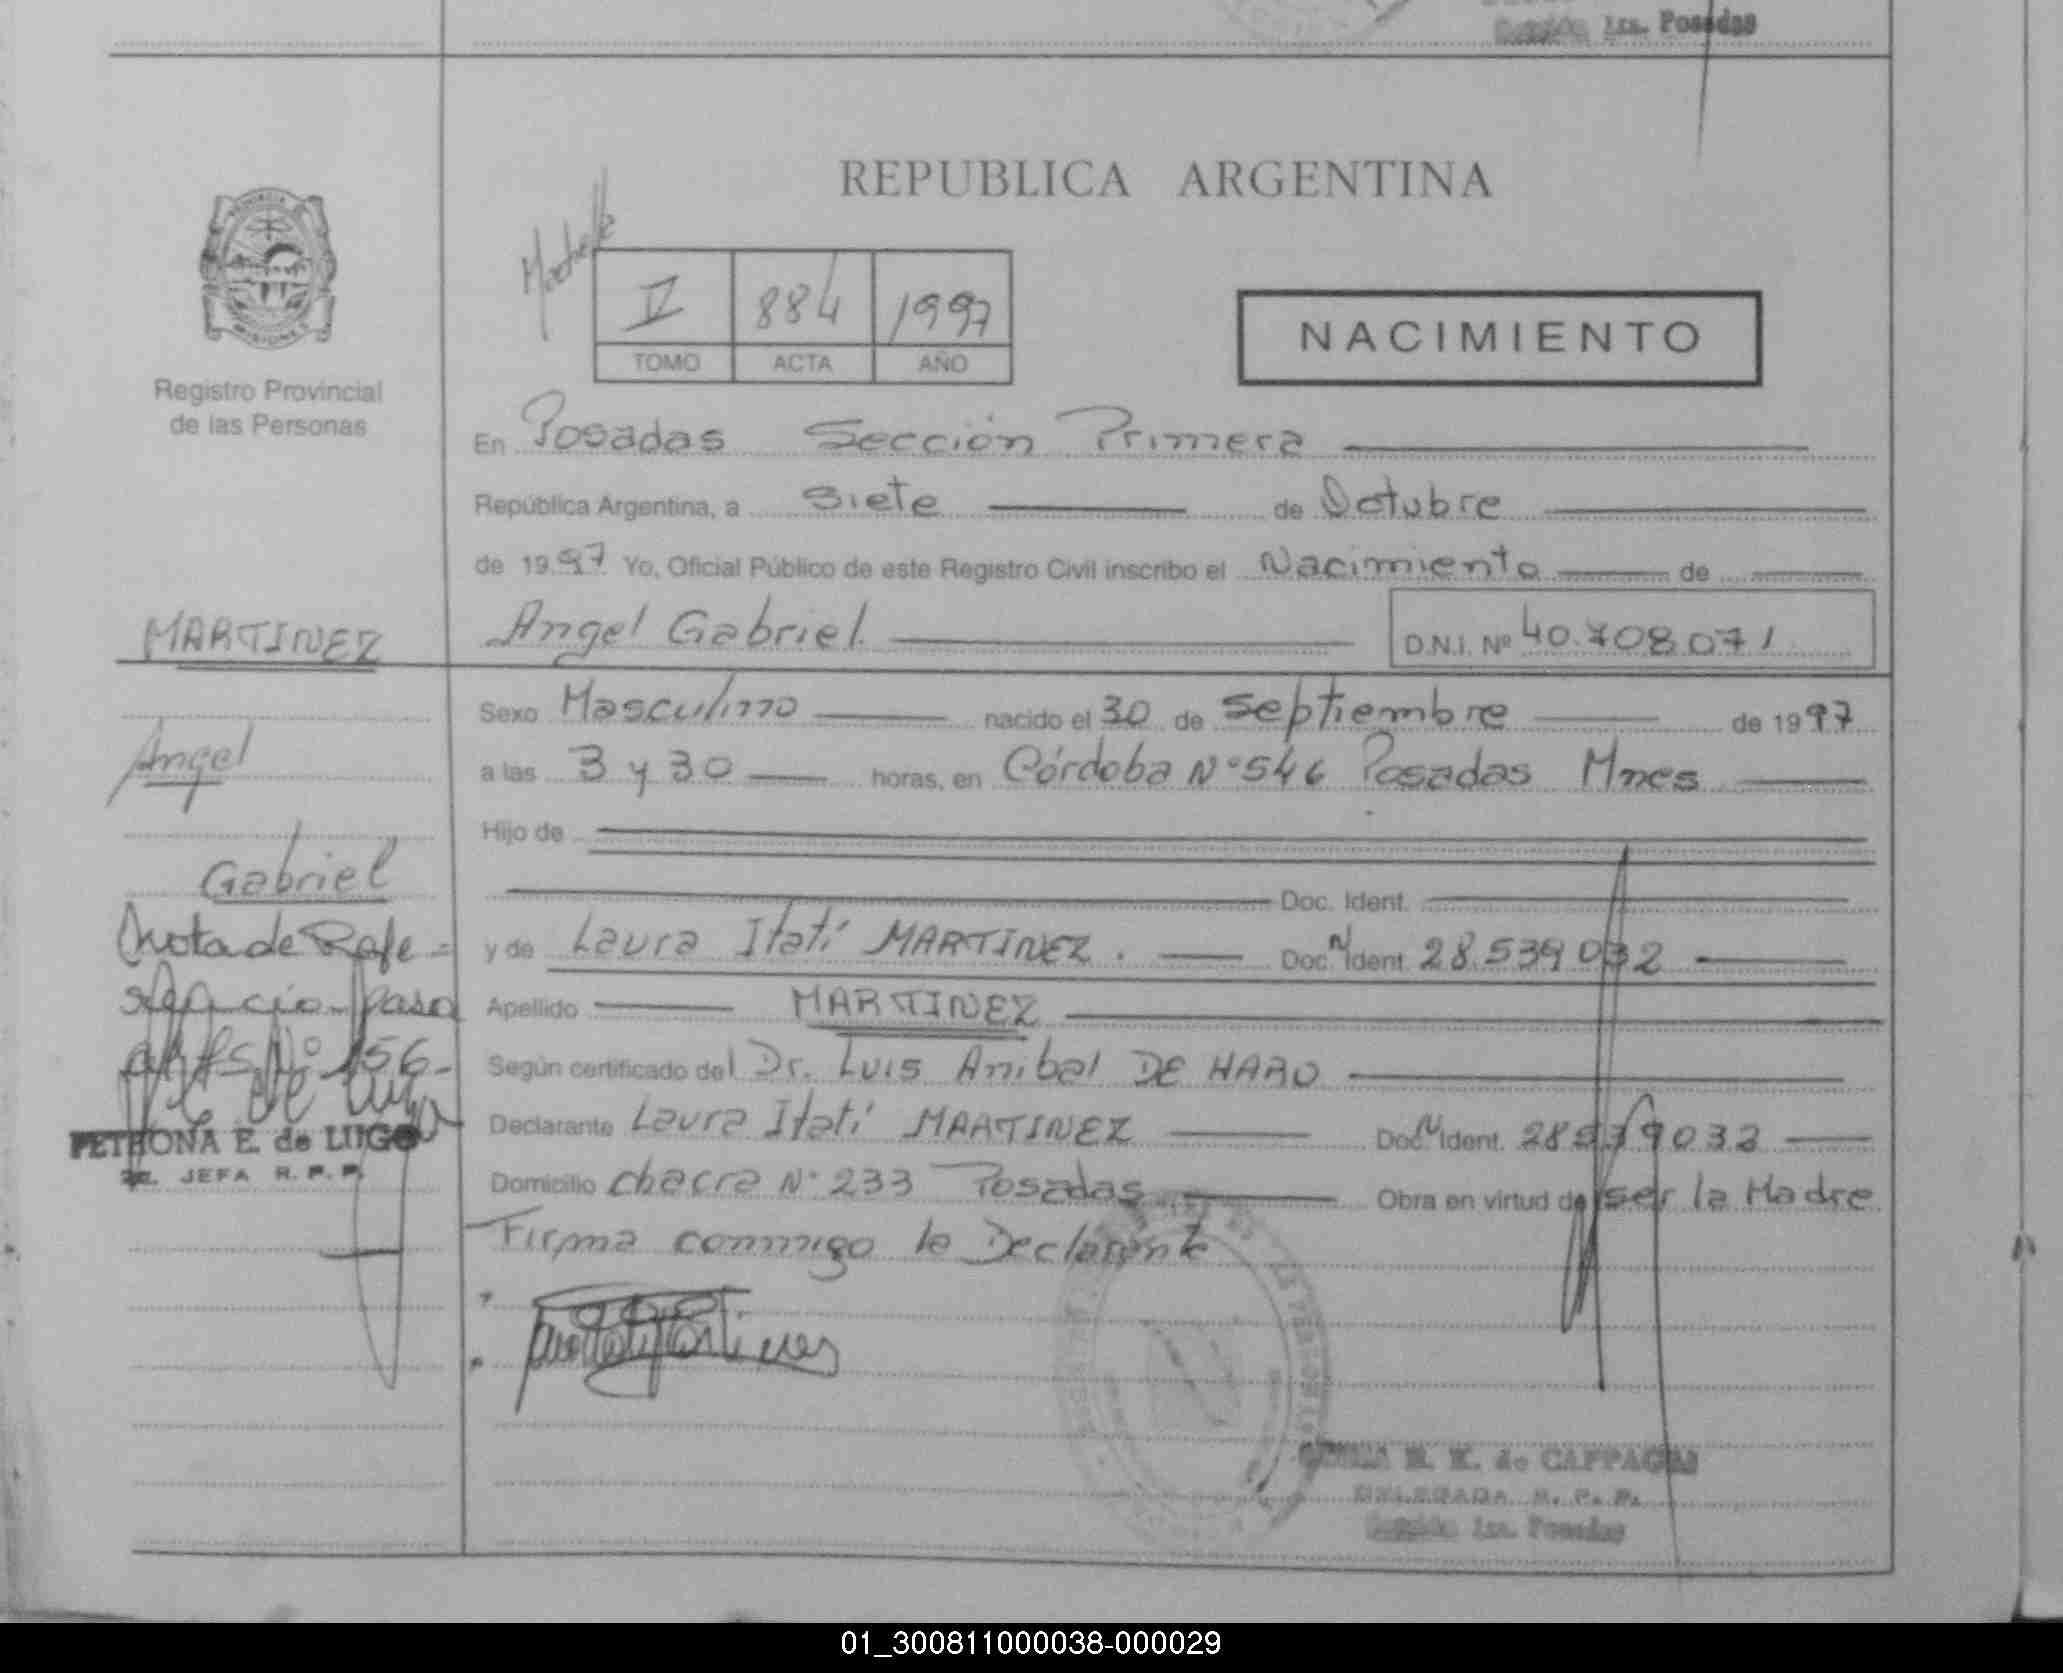 1ra. Posadas
REPUBLICA ARGENTINA
PROVINCIA DE MISIONES
Registro Provincial
de las Personas
V 884 1997
TOMO ACTA AÑO
NACIMIENTO
En Posadas Sección Primera
República Argentina, a siete de Octubre
de 1997 Yo, Oficial Público de este Registro Civil inscribo el Nacimiento de
MARTINEZ
Angel Gabriel
D.N.I. Nº 40.708.071
Sexo Masculino nacido el 30 de septiembre de 1997
Angel
a las 3 y 30 horas, en Córdoba Nº 546 Posadas Mnes
Hijo de
Gabriel
Doc. Ident.
Nota de Refe=
y de Laura Itatí MARTINEZ. Doc. Ident. 28.539032
Apellido MARTINEZ
a fs. Nº 156-
Según certificado del Dr. Luis Anibal DE HARO
PETRONA E. de LUGO
JEFA R. P. P.
Declarante Laura Itatí MARTINEZ Doc. Ident. 28539032
Domicilio chacra Nº 233 Posadas Obra en virtud de ser la Madre
Firma conmigo la Declarante
E. K. de CAPPAGAS
DELEGADA R. P. P.
Sección 1ra. Posadas
01_300811000038-000029